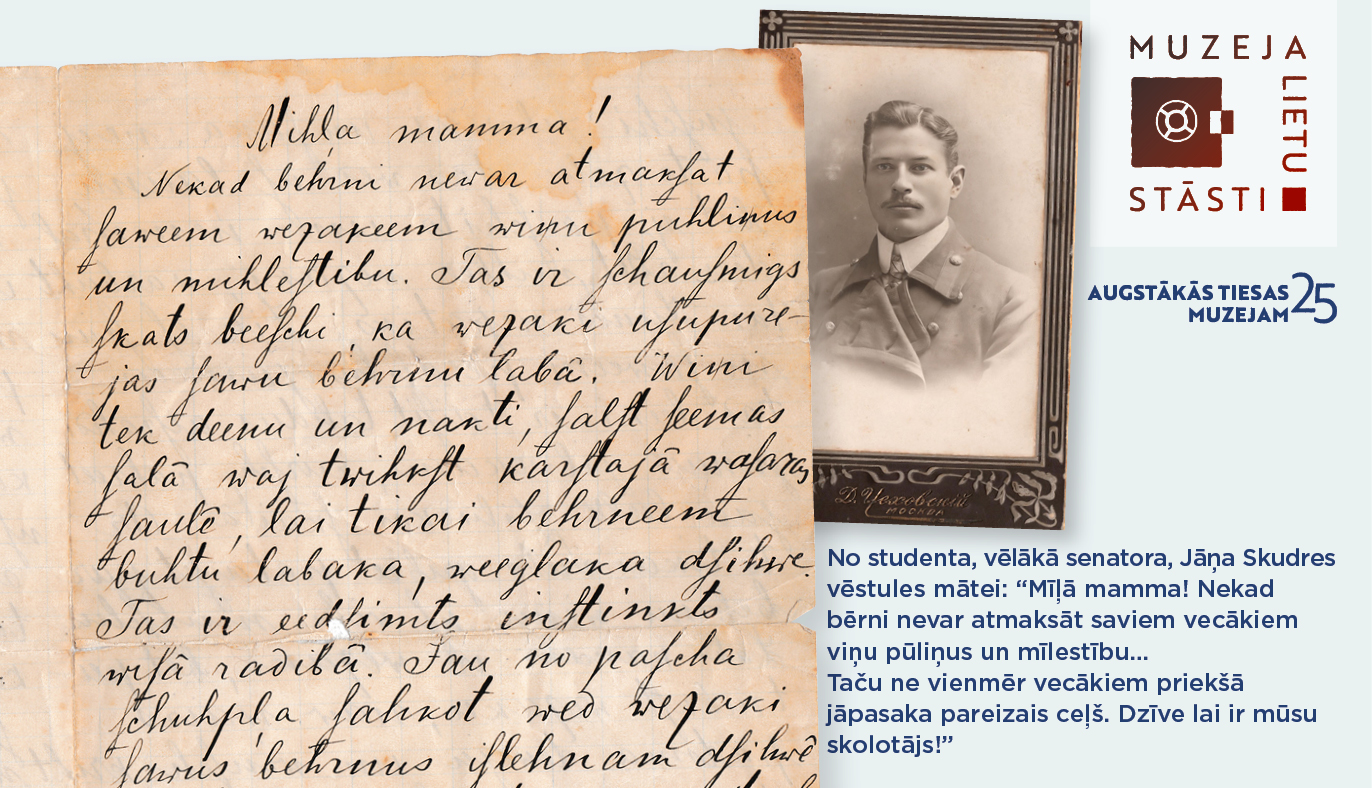 Mihļa mamma!
Nekad behrni newar atmakſat
ſaweem wezakeem wiņu puhliņus
un mihleſtibu. Tas ir ſchauſmigs
ſkats beeſchi, ka wezaki uſupure-
jas ſawu behrnu labâ. Wiņi
tek deenu un nakti, ſalſt ſeemas
ſalâ waj twihkſt karſtajâ waſaras
ſaulē, lai tikai behrneem
buhtu labaka, weeglaka dſihwe.
Tas ir eedſimts inſtinkts
wiſâ radibâ. Jau no paſcha
ſchuhpļa ſahkot wed wezaki
ſawus behrnus iſlehnam dſihwē
Д. Чеховский
МОСКВА
MUZEJA
LIETU
STĀSTI
AUGSTĀKĀS TIESAS
MUZEJAM 25
No studenta, vēlākā senatora, Jāņa Skudres
vēstules mātei: “Mīļā mamma! Nekad
bērni nevar atmaksāt saviem vecākiem
viņu pūliņus un mīlestību...
Taču ne vienmēr vecākiem priekšā
jāpasaka pareizais ceļš. Dzīve lai ir mūsu
skolotājs!”